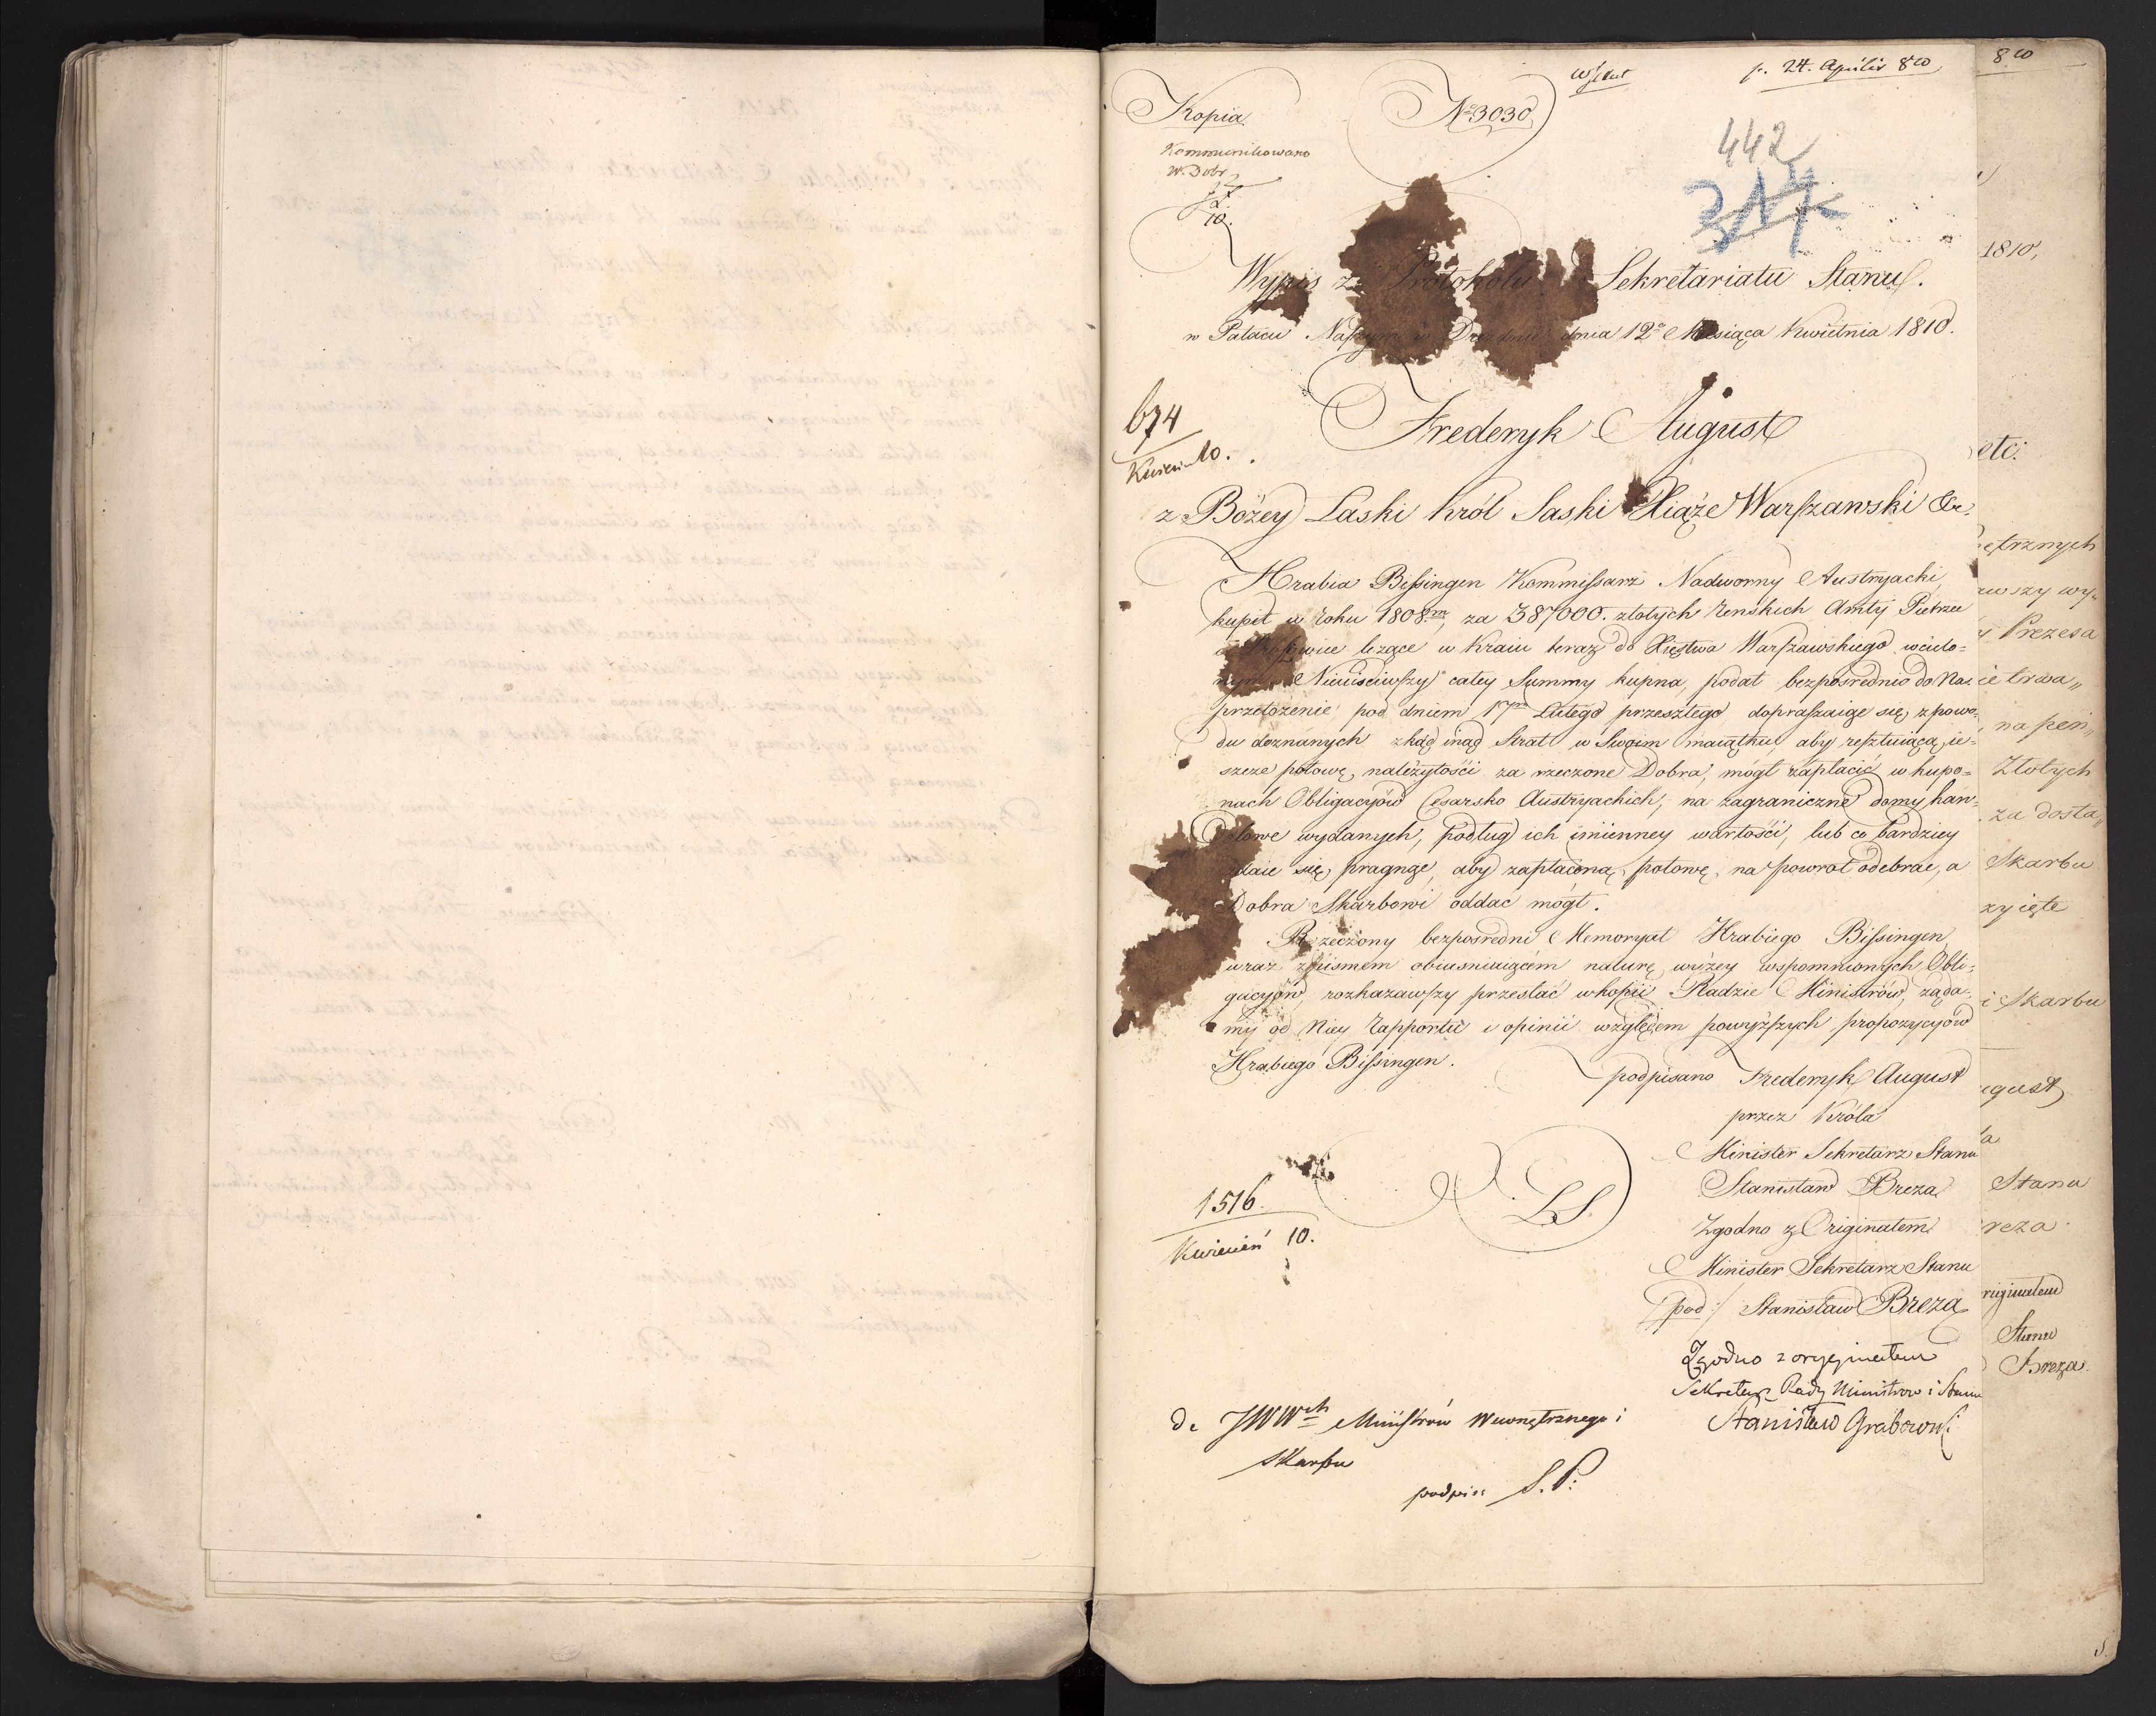 p. 24. Aprilis 810
Kopia
No 3030
Kommunikowano
W. Dobr
10.
442
Wypis z Protokołu Sekretariatu Stanu.
w Pałacu Naszym w Dreznie dnia 12o Miesiąca Kwietnia 1810.
674
Kwiecień 10.
Frederyk August
z Bożey Łaski Król Saski Xiąże Warszawski &c.
Hrabia Bissingen Kommissarz Nadworny Austryacki,
kupił w roku 1808m, za 387000. złotych Reńskich Amty Pietrzec
leżące w Kraiu teraz do Xięstwa Warszawskiego wcielo=
nym. Nieuiściwszy całey Summy kupna, podał bezpośrednio do Nas
przełożenie pod dniem 17m Lutego przeszłego dopraszaiąc się, z powo=
du doznanych zkąd inąd Strat w Swoim maiątku, aby resztuiącą ie=
szcze połowę, należytości za rzeczone Dobra, mógł zapłacić w kupo=
nach Obligacyów Cesarsko Austryackich, na zagraniczne domy han=
dlowe wydanych, podług ich imienney wartości, lub co bardziey
zdaie się, pragnąc, aby zapłaconą połowę, na powrot odebrać, a
Dobra Skarbowi oddać mógł.
Rzeczony bezpośredni Memoryał Hrabiego Bissingen
wraz z pismem obiaśniaiącém naturę wyżey wspomnionych Obli=
gacyów, rozkazawszy przesłać w kopii Radzie Ministrów, żąda=
my od Niey Rapportu i opinii względem powyższych propozycyów
Hrabiego Bissingen.
podpisano Frederyk August
przez Króla
Minister Sekretarz Stanu
Stanisław Breza
Zgodno z Originałem
Minister Sekretarz Stanu
/pod:/ Stanisław Breza
LS.
1516.
Kwiecień 10.
Zgodno z oryginałem
Sekretarz Rady Ministrow i Stanu
Stanisław Grabowski
Do JWWch Ministrów Wewnętrznego i
Skarbu
podpis: S. P:
810
1810,
etc:
ętrznych
wszy wy=
Prezesa
na pen„
Złotych
za dosta„
Skarbu
zyięte
i Skarbu
gust
Stanu
reza
riginałem
Stanu
Breza.